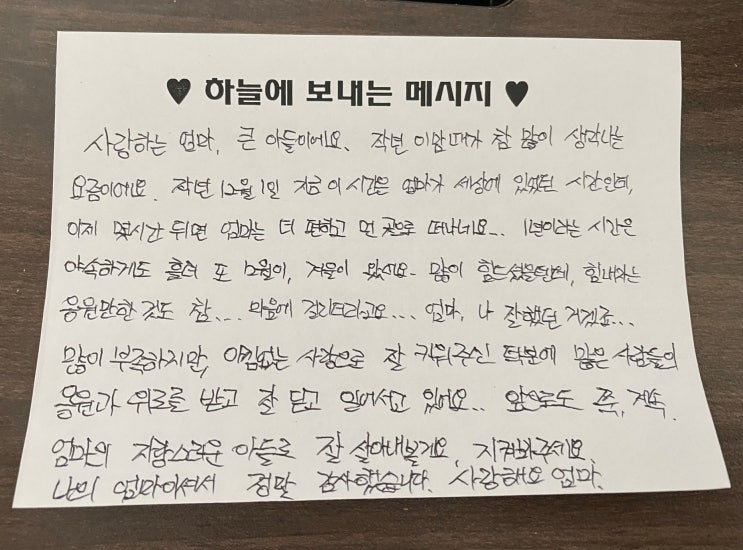 ♥ 하늘에 보내는 메시지 ♥
사랑하는 엄마, 큰 아들이에요. 작년 이맘때가 참 많이 생각나는
요즘이에요. 작년 12월 1일 지금 이 시간은 엄마가 세상에 있었던 시간인데,
이제 몇시간 뒤면 엄마는 더 편하고 먼 곳으로 떠나네요... 1년이라는 시간은
야속하게도 흘러 또 12월이, 겨울이 왔어요. 많이 힘드셨을텐데, 힘내라는
응원만한 것도 참... 마음에 걸리더라고요... 엄마, 나 잘했던 거겠죠...
많이 부족하지만, 아낌없는 사랑으로 잘 키워주신 덕분에 많은 사람들의
응원과 위로를 받고 잘 딛고 일어서고 있어요.. 앞으로도 쭉, 계속.
엄마의 자랑스러운 아들로 잘 살아내볼게요, 지켜봐주세요.
나의 엄마여서 정말 감사했습니다. 사랑해요 엄마.